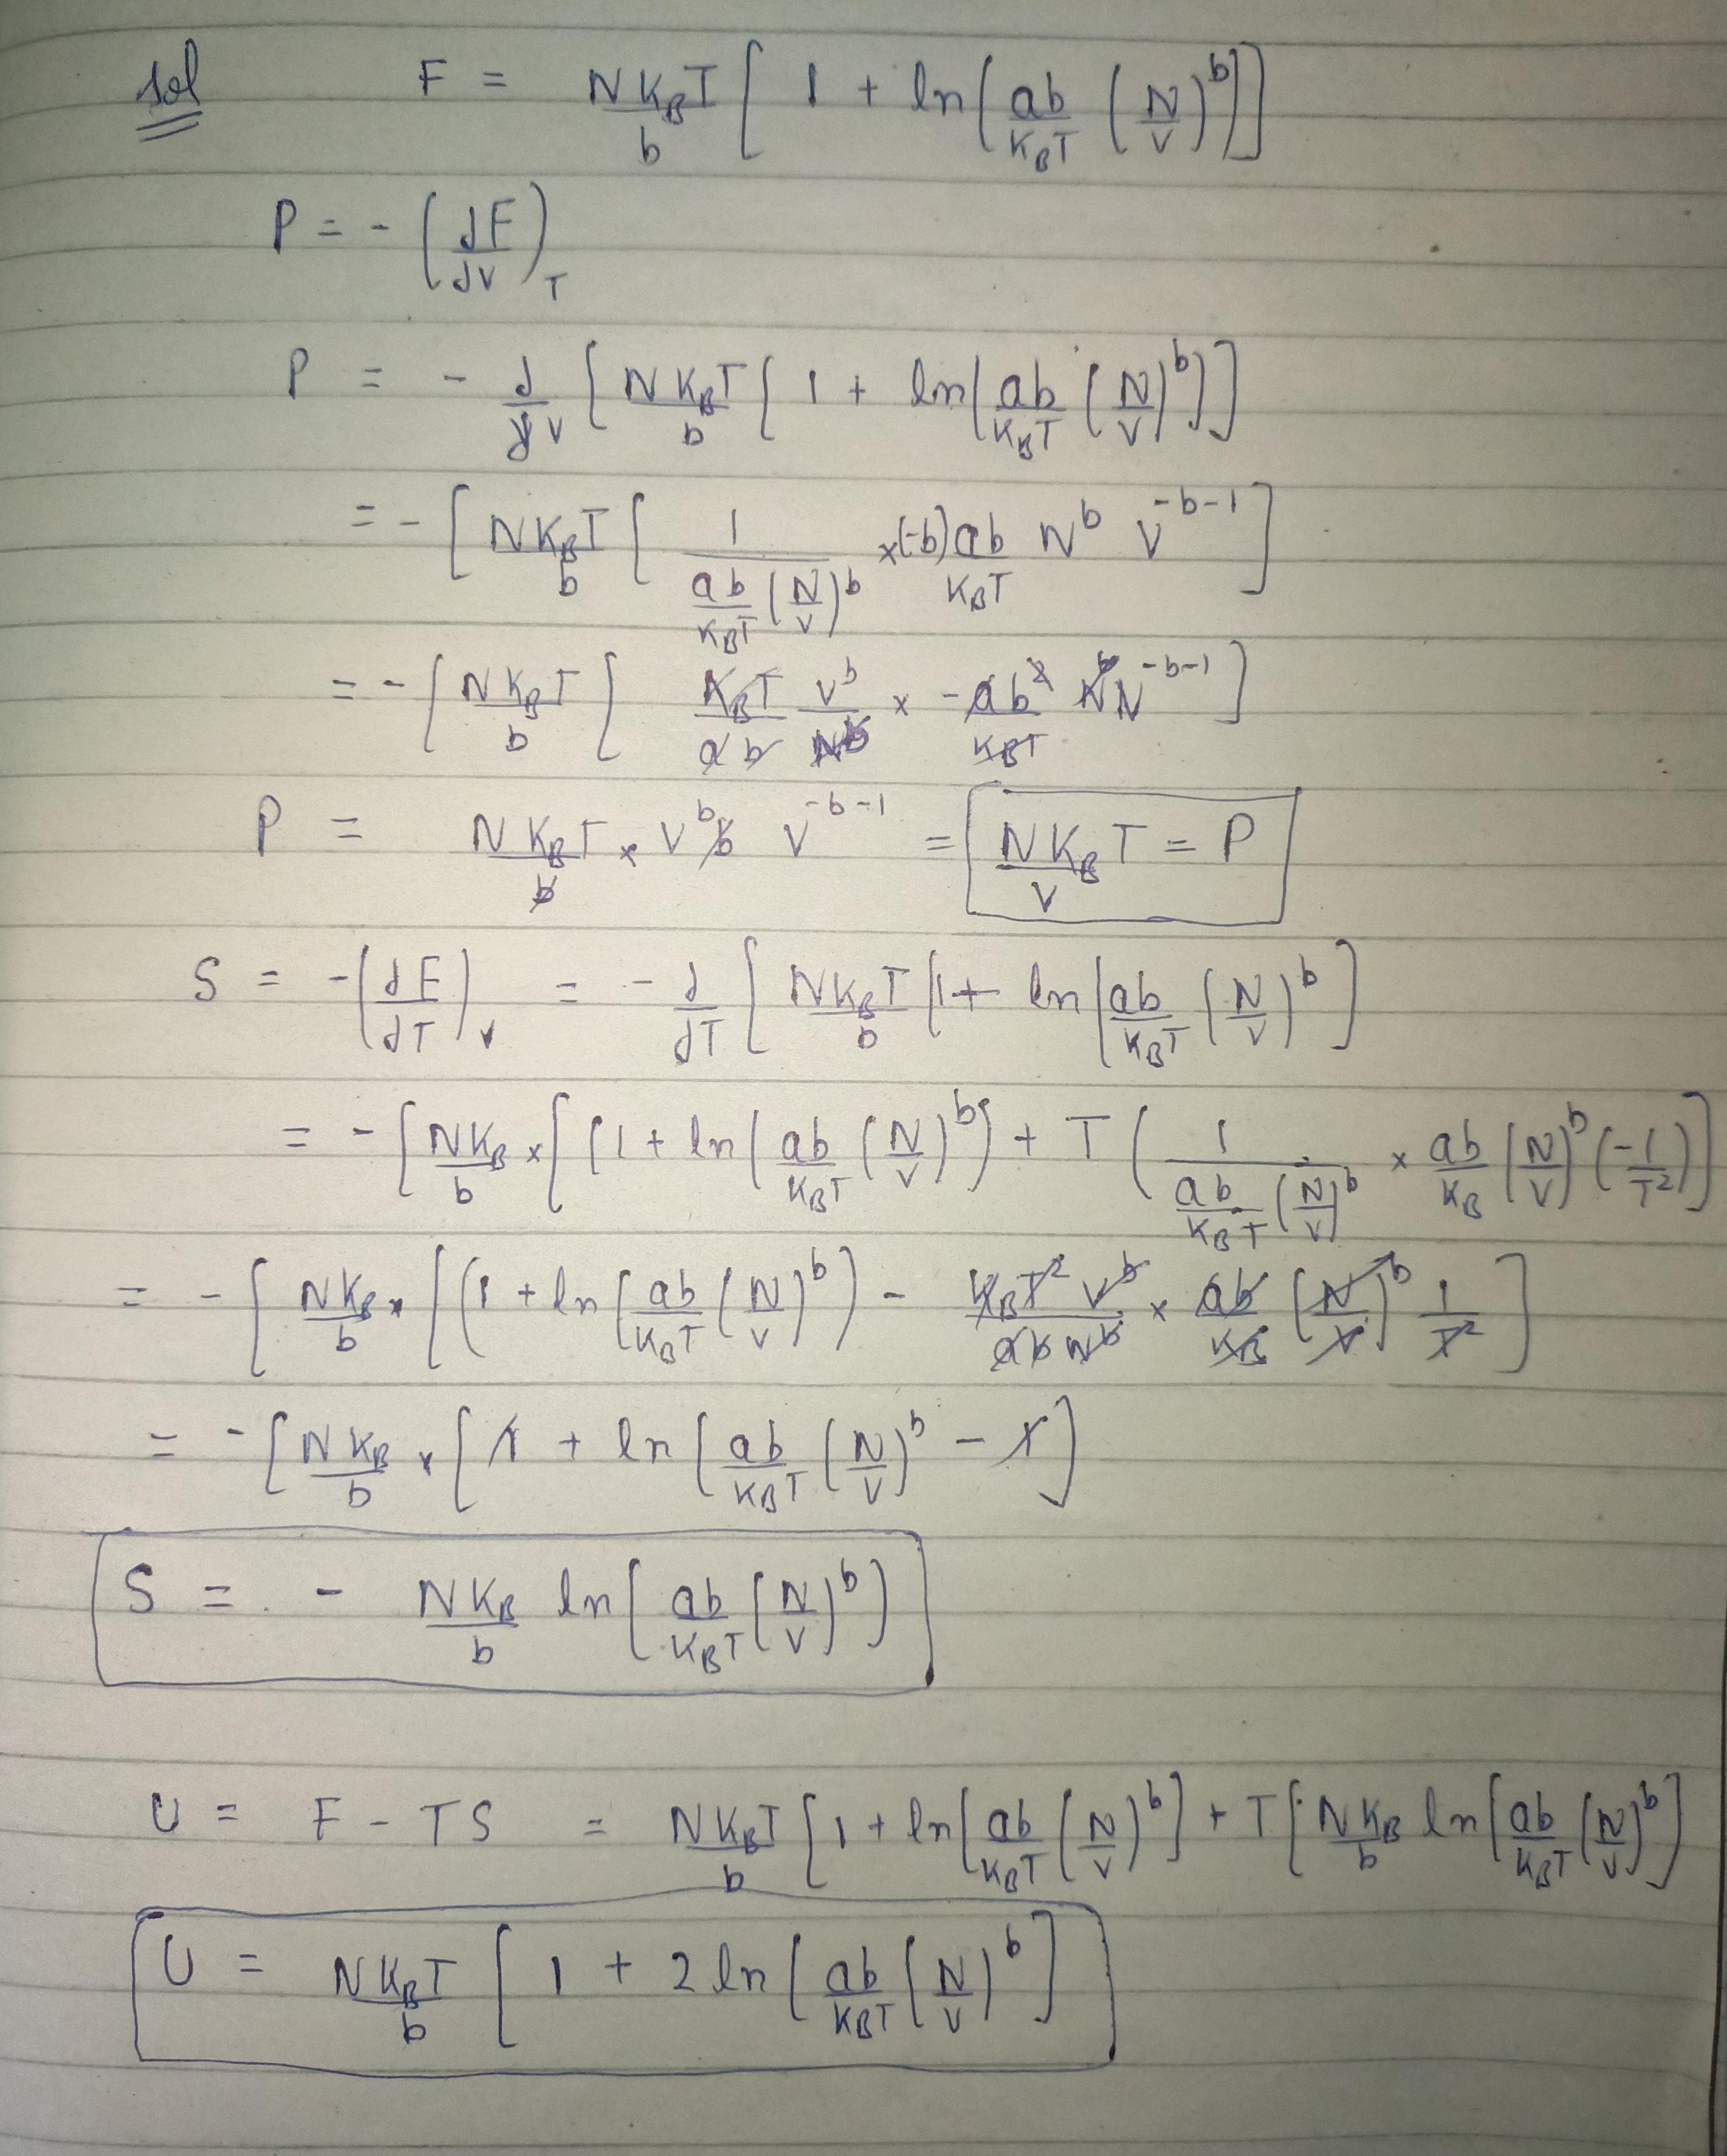 sol F = NK_BT/b [ 1 + ln( ab/K_BT (N/V)^b ) ]
P = - (dF/dV)_T
P = - d/dV [ NK_BT/b [ 1 + ln( ab/K_BT (N/V)^b ) ]
= - [ NK_BT/b [ 1/(ab/K_BT (N/V)^b) × (-b) ab/K_BT N^b V^(-b-1) ]
= - [ NK_BT/b [ K_BT/ab V^b/N^b × -ab^2/K_BT N^b N^(-b-1) ]
P = NK_BT/b × V^b b V^(-b-1) = NK_BT/V = P
S = -(dF/dT)_V = - d/dT [ NK_BT/b [ 1 + ln( ab/K_BT (N/V)^b ]
= - [ NK_B/b × [ (1 + ln( ab/K_BT (N/V)^b ) + T ( 1/(ab/K_BT (N/V)^b) × ab/K_B (N/V)^b (-1/T^2) ) ]
= - [ NK_B/b × [ (1 + ln( ab/K_BT (N/V)^b ) - K_BT^2 V^b/ab N^b × ab/K_B (N/V)^b 1/T^2 ]
= - [ NK_B/b × [ 1 + ln( ab/K_BT (N/V)^b - 1 ]
S = - NK_B/b ln( ab/K_BT (N/V)^b )
U = F - TS = NK_BT/b [ 1 + ln( ab/K_BT (N/V)^b ] + T [ NK_B/b ln( ab/K_BT (N/V)^b ]
U = NK_BT/b [ 1 + 2 ln( ab/K_BT (N/V)^b ]